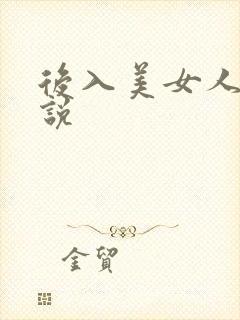 後入美女人
說
金貿